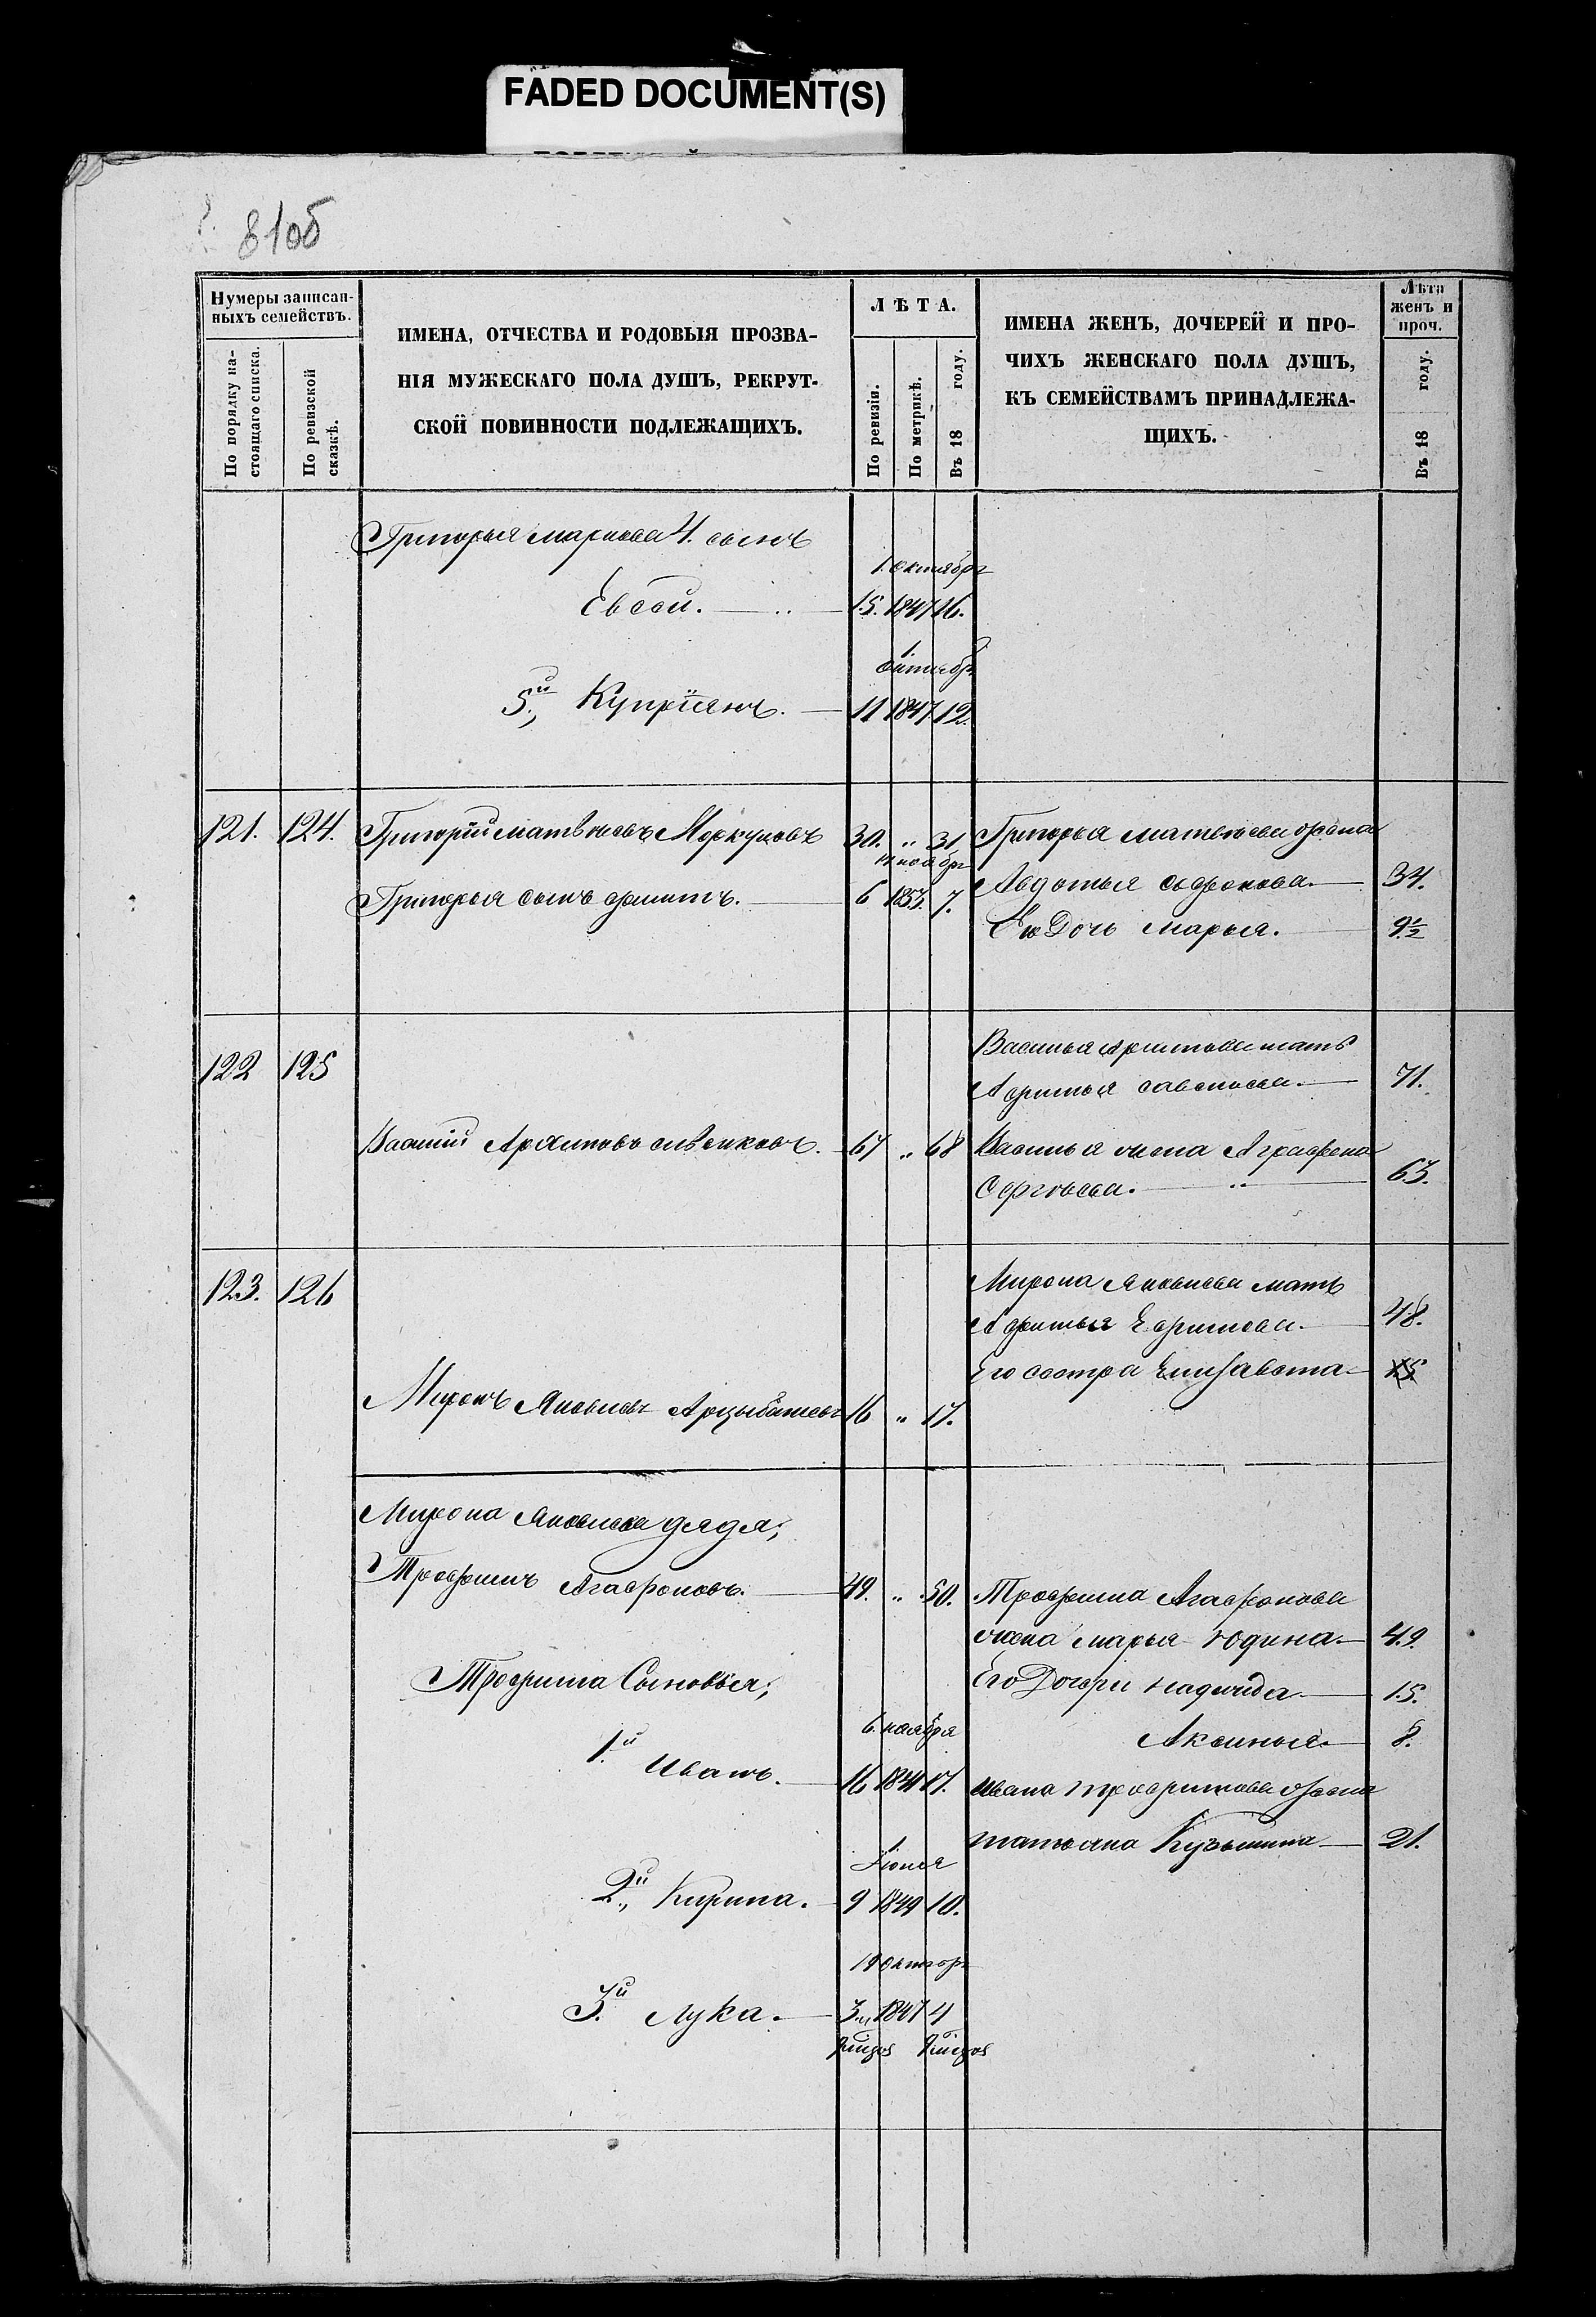 FADED DOCUMENT(S)
81об
Нумеры записан-
ныхъ семействъ.
По порядку на-
стоящаго списка.
По ревизской
сказкѣ.
ИМЕНА, ОТЧЕСТВА И РОДОВЫЯ ПРОЗВА-
НІЯ МУЖЕСКАГО ПОЛА ДУШЪ, РЕКРУТ-
СКОЙ ПОВИННОСТИ ПОДЛЕЖАЩИХЪ.
ЛѢТА.
По ревизіи.
По метрикѣ.
Въ 18 году.
ИМЕНА ЖЕНЪ, ДОЧЕРЕЙ И ПРО-
ЧИХЪ ЖЕНСКАГО ПОЛА ДУШЪ,
КЪ СЕМЕЙСТВАМЪ ПРИНАДЛЕЖА-
ЩИХЪ.
Лѣта
женъ и
проч.
Въ 18 году.
Григорья Маркова 4. сынъ
1. октября
Евсей. 15. 1847 16.
1.
октябр
5й., Купріянъ. 11 1847. 12.
121. 124. Григорій Матвѣевъ Меркуловъ 30. „ 31 Григорья Матвѣева жена
ноября
Григорья сынъ 6 1853. 7. Авдотья Софронова. 34.
Его Дочь Марья. 9½
122 125 Василья Архипова мать
Афимья Савельева. 71.
Василій Архиповъ 67 „ 68 Василья жена Аграфена
Сергѣева. 63.
123. 126 Мирона Яковлева мать
Афимья Ефимова. 48.
Его сестра Елизавета 15
Миронъ Яковлевъ Арцыбашевъ 16 „ 17.
Мирона Яковлева дядя;
Трофимъ Агафоновъ. 49. „ 50. Трофима Агафонова
жена Марья Юдина 49.
Трофима Сыновья; Его Дочери Надежда 15.
6. ноября
Аксинья 8.
1.й Иванъ. 16 1841 17. Ивана Трофимова жена
Татьяна Кузьмина 21.
1
Іюня
2.й, Кирила. 9 1849 10.
19 октяб
3.й Лука. 3 1847 4